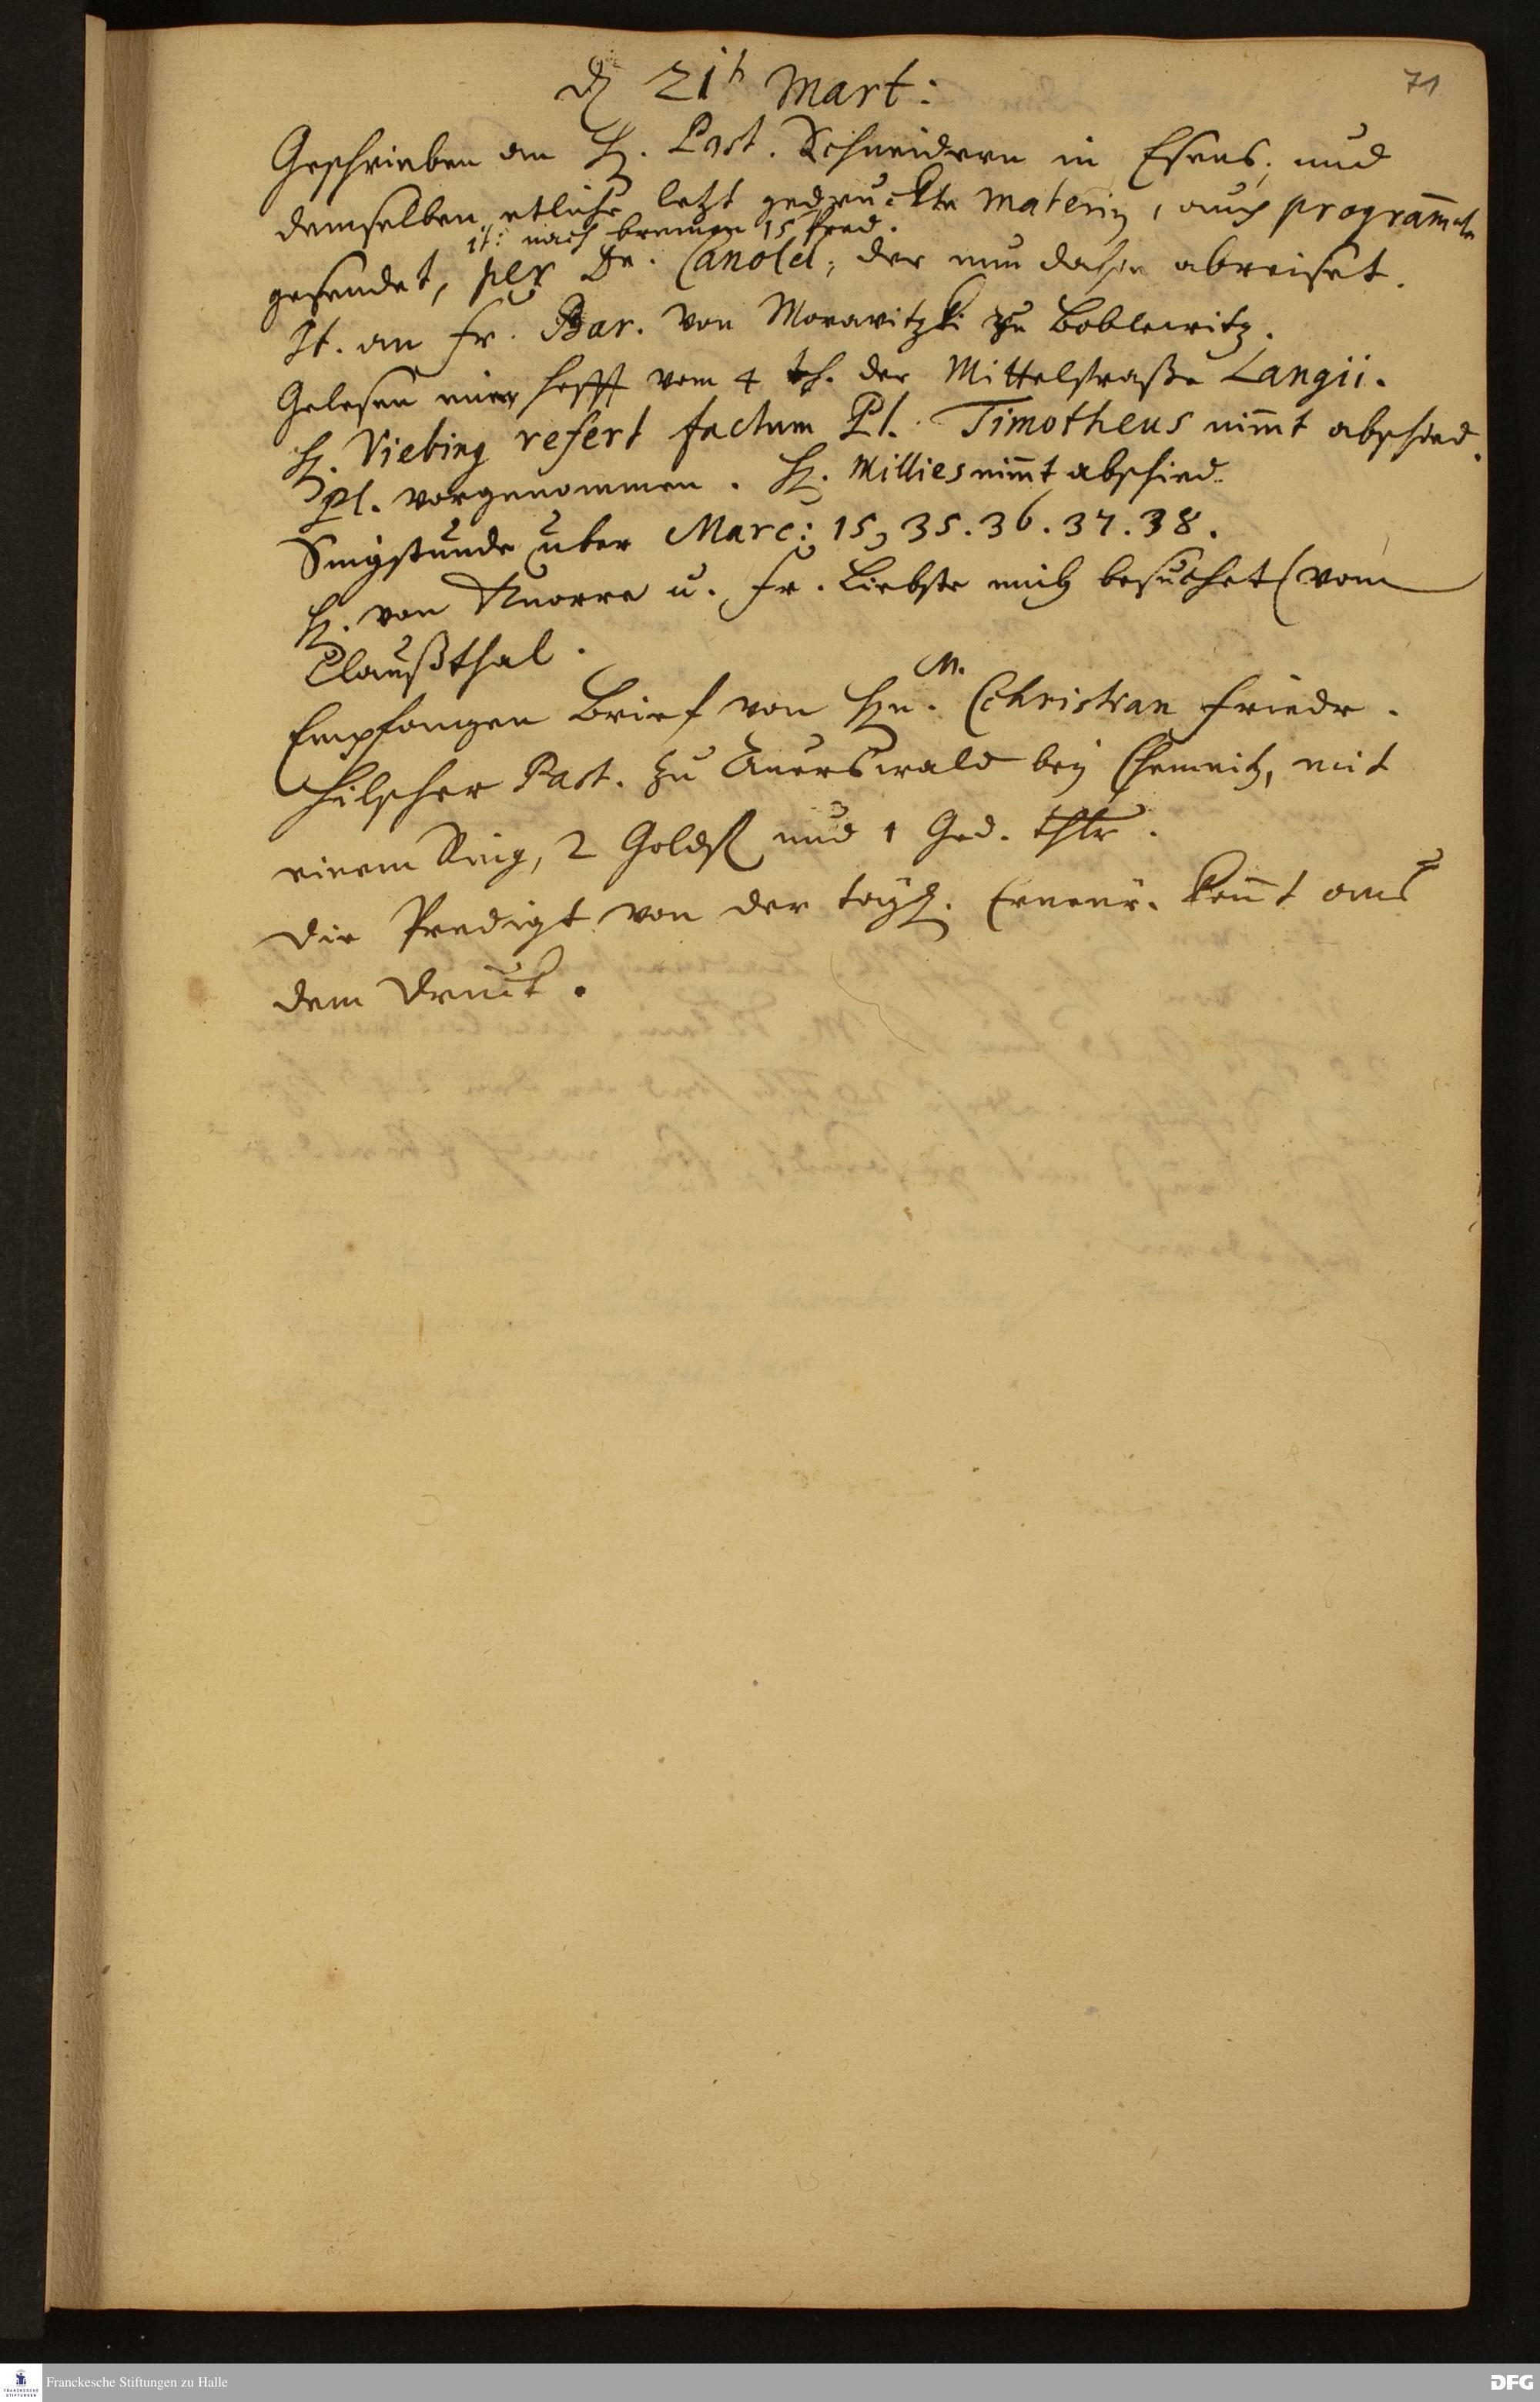 71
d. 21t Mart:
Geschrieben an H. Past. Schneidern in Esens, und
demselben etliche letzt gedruckte Materien, auch programmata
it: nach bremen 15 Pred.
gesendet, per Dn. Canold, der nun dahin abreiset.
It. an Fr. Bar. von Morawitzki zu Boblewitz.
Gelesen einen hefft vom 4 th. der Mittelstraße Langii.
H. Viebing refert factum Pl. Timotheus nimt abschied.
Pl. vorgenommen. H. Millies nimt abschied.
Singstunde über Marc: 15, 35. 36. 37. 38.
H. von Knorre u. Fr. Liebste mich besuchet (vom
Claußthal.
Empfangen Brief von Hn. M. Christian Friedr.
Hilscher Past. zu Auerswald bey Chemnitz, mit
einem Ring, 2 Goldst und 1 Ged. thlr.
Die Predigt von der tägl. Erneur. kömt aus
dem Druck.
Franckesche Stiftungen zu Halle
DFG